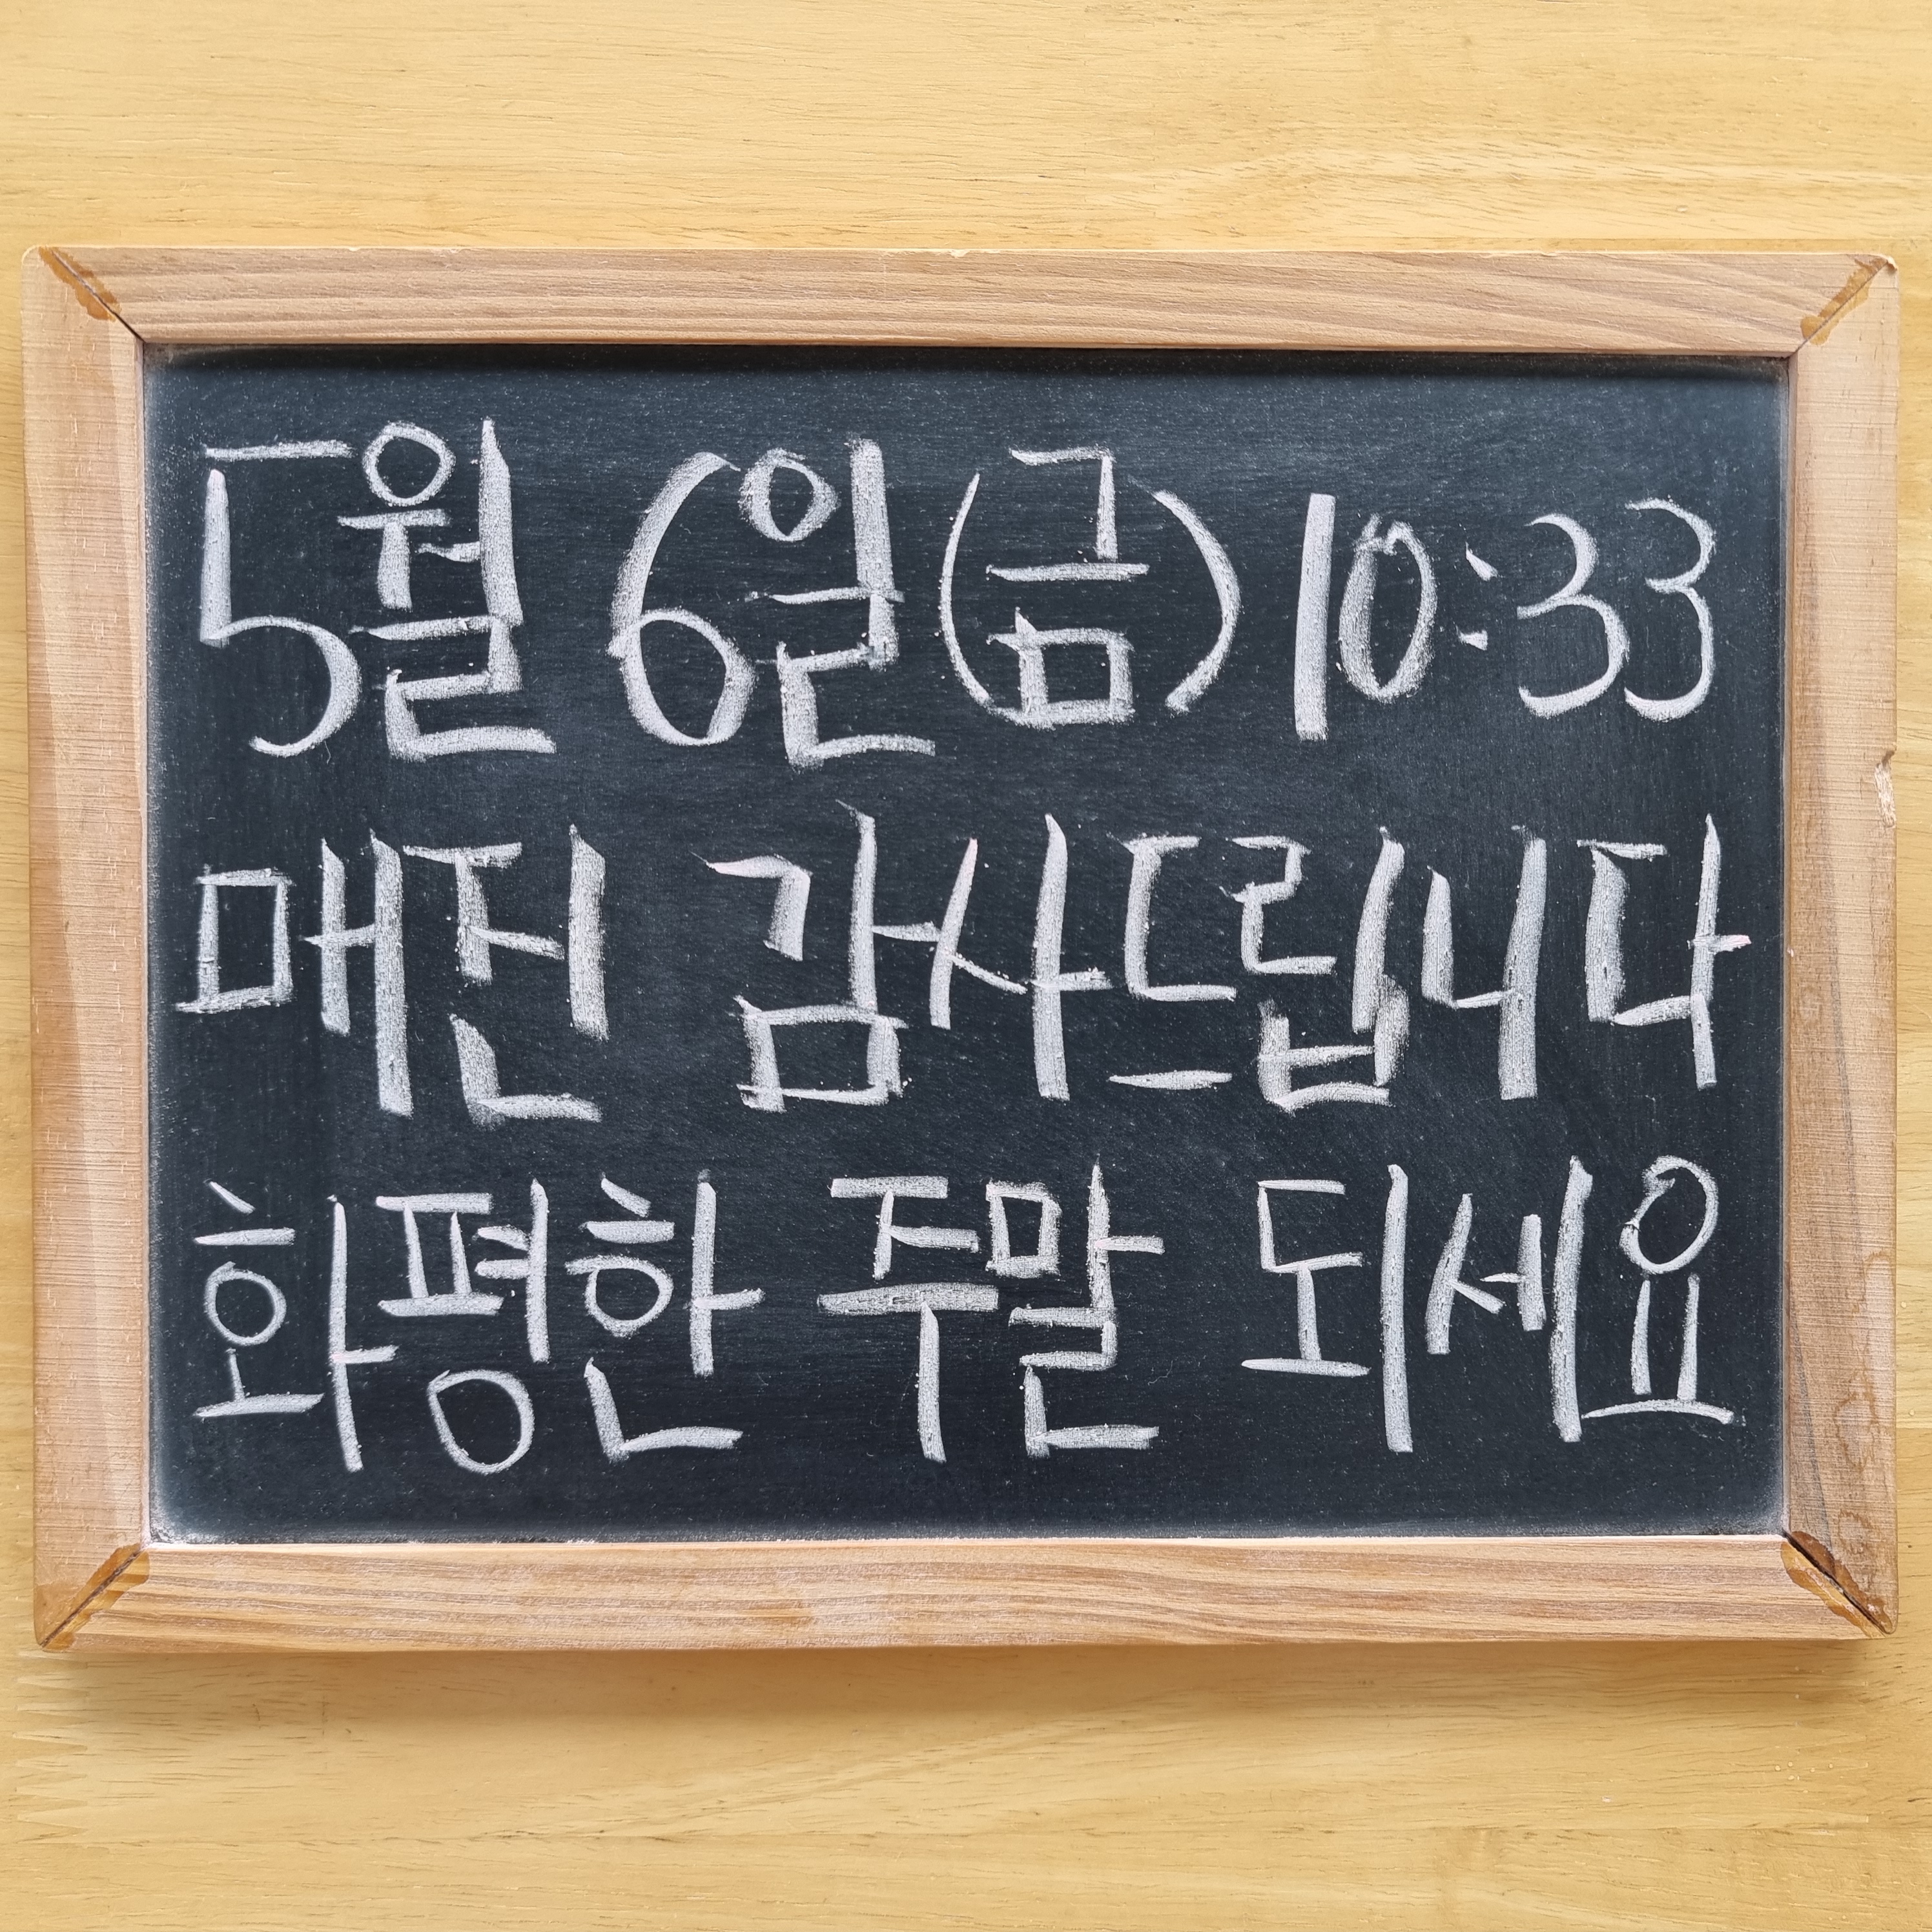 5월 6일(금) 10:33
매진 감사드립니다
화평한 주말 되세요